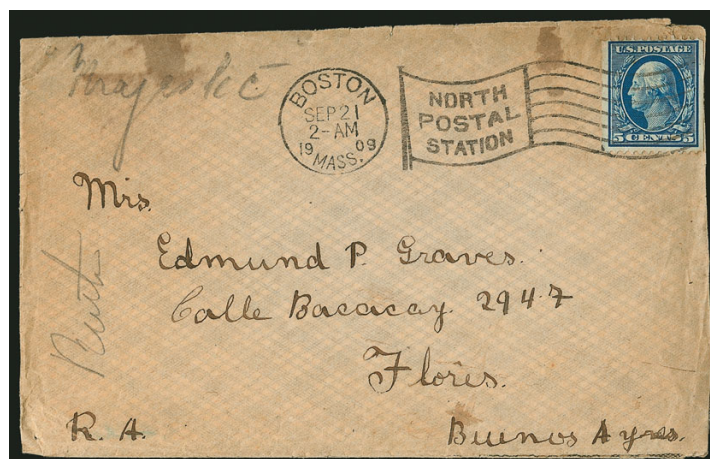 Majestic
BOSTON
SEP 21
2-AM
19 09
MASS.
NORTH
POSTAL
STATION
U.S. POSTAGE
5 CENTS 5
Mrs.
Edmund P. Graves.
Calle Bacacay 2947
Flores.
R. A. Buenos Ayres.
Ruth